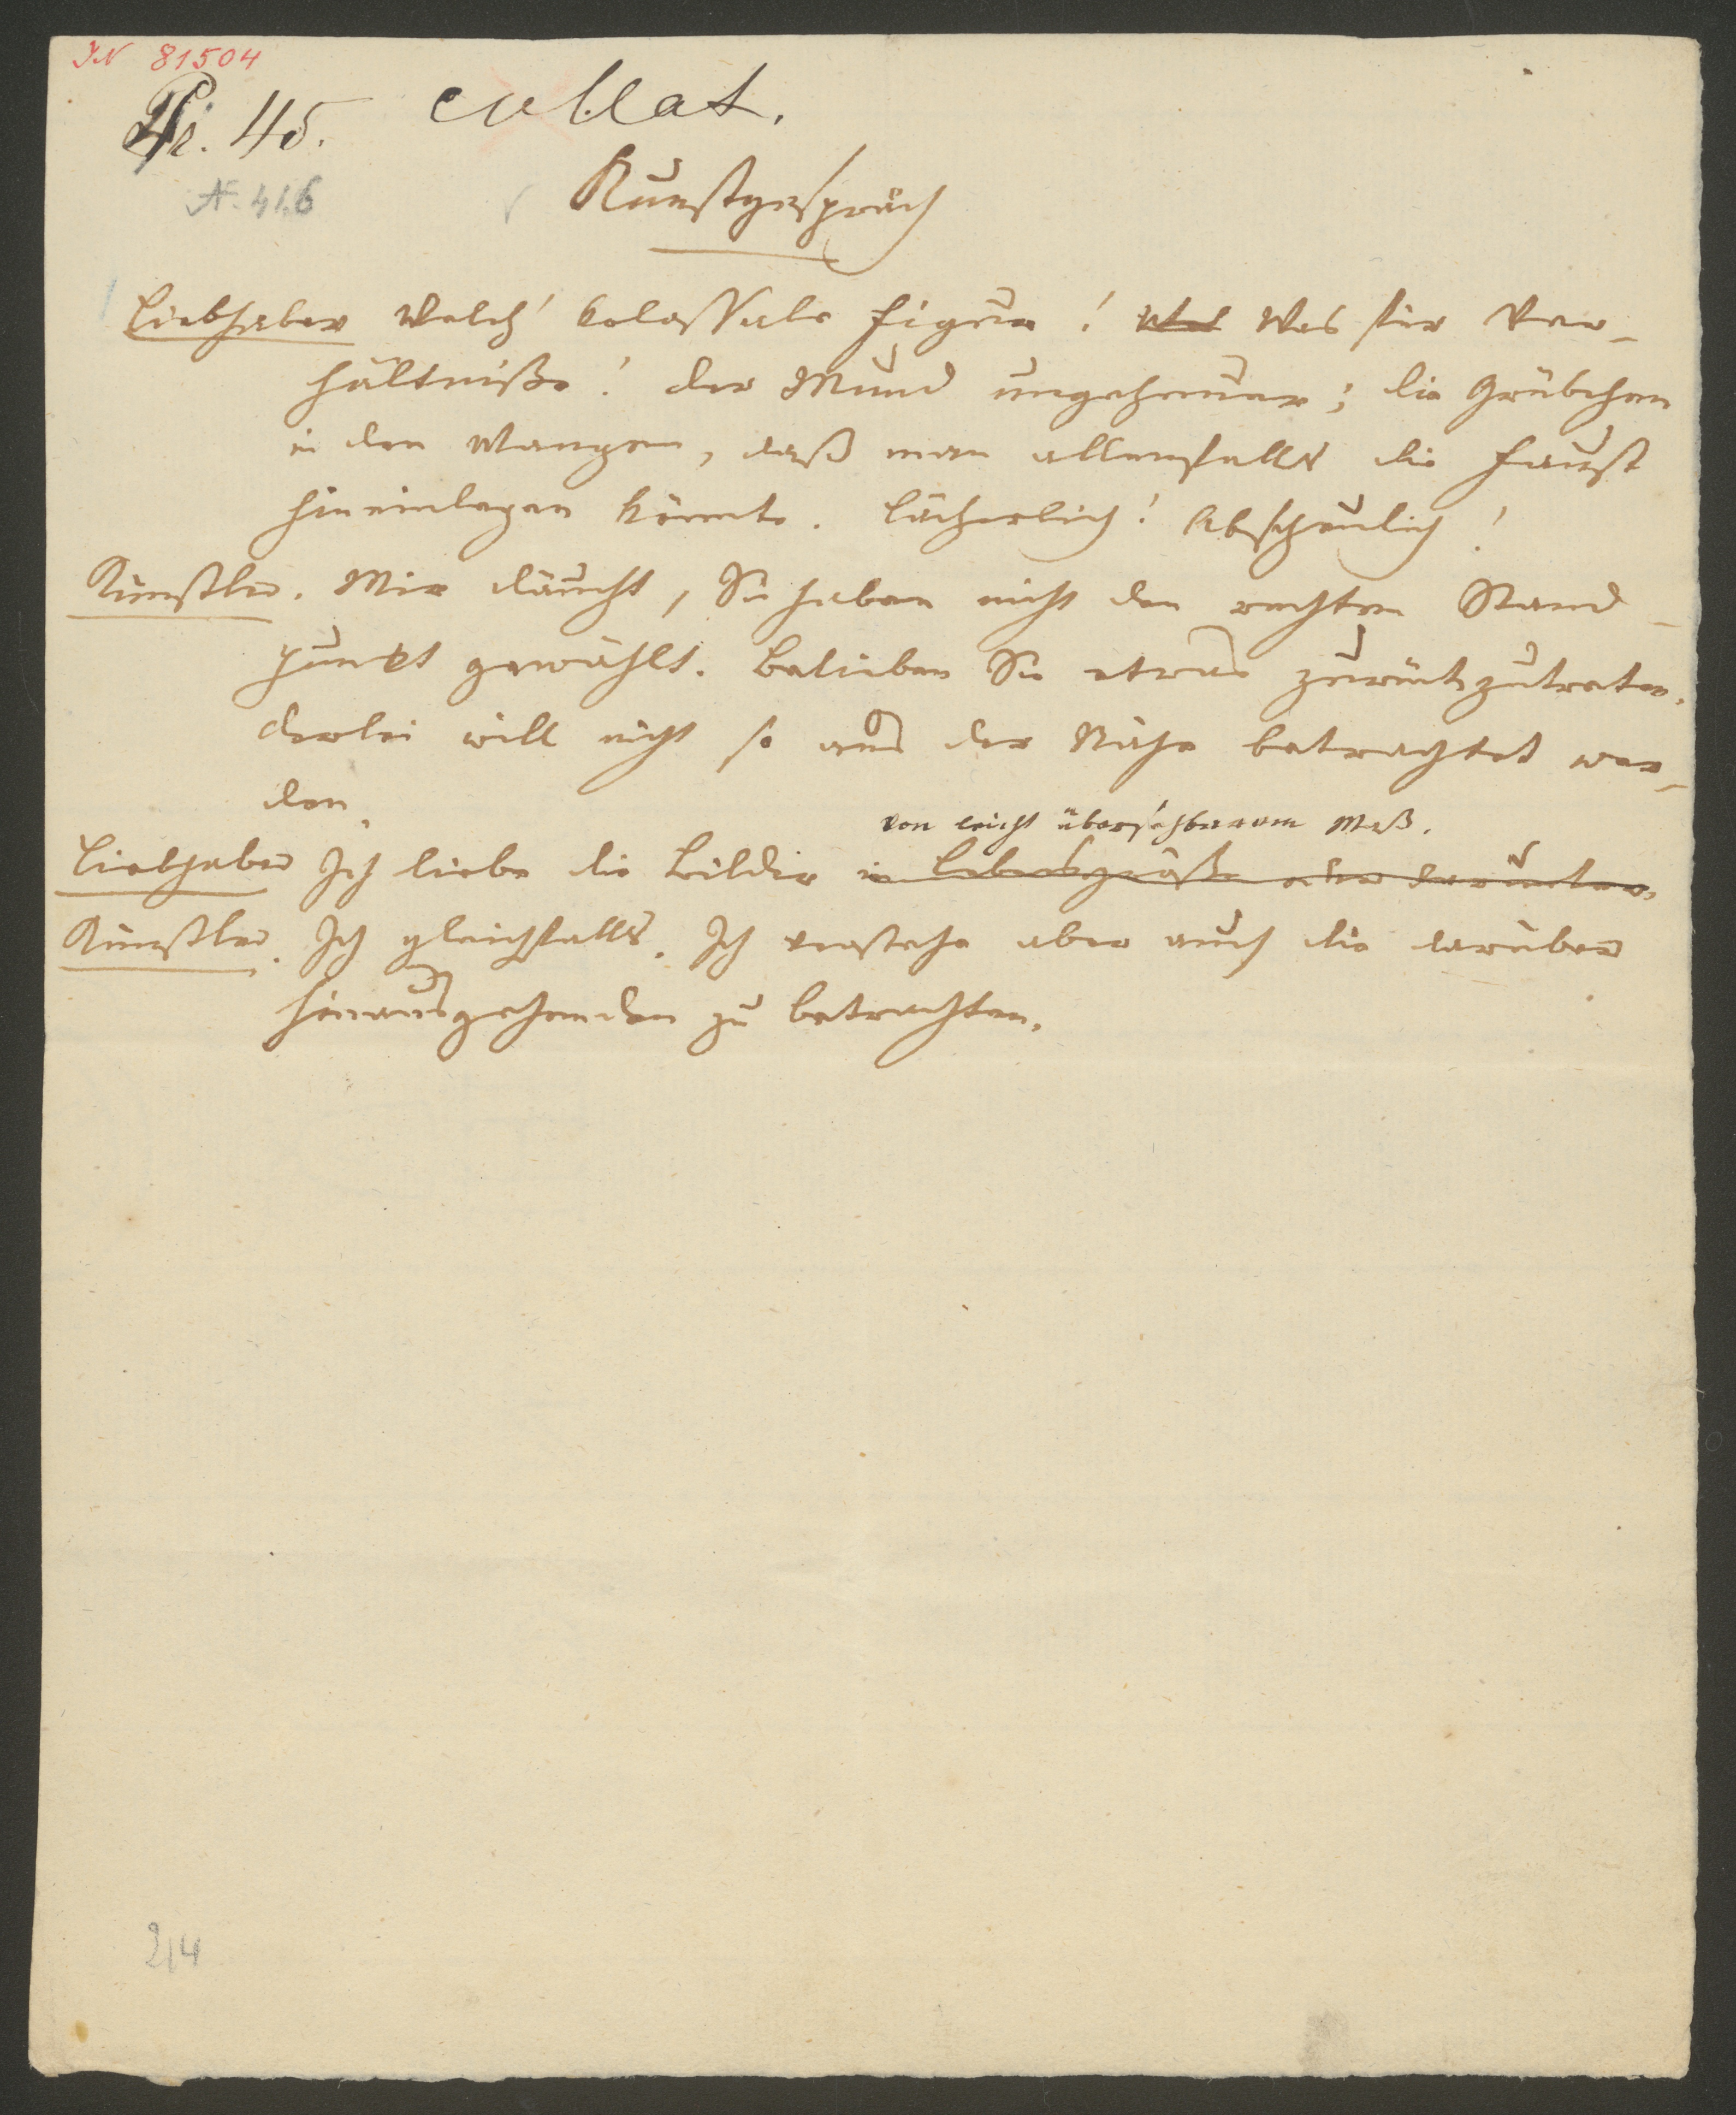 IN 81504
Pr. 45. collat.
N. 416
Kunstgespräch
Liebhaber Welch' kolossale Figur! Was Was für Ver-
hältniße! der Mund ungeheuer; die Grübchen
in den Wangen, daß man allenfalls die Faust
hineinlegen könnte. Lächerlich! Abscheulich!
Künstler. Mir däucht, Sie haben nicht den rechten Stand-
punkt gewählt. Belieben Sie etwas zurückzutreten.
derlei will nicht so aus der Nähe betrachtet wer-
den.
von leicht übersehbarem Maß.
Liebhaber Ich liebe die Bilder in Lebensgröße oder darunter.
Künstler. Ich gleichfalls. Ich verstehe aber auch die darüber
hinausgehenden zu betrachten.
214